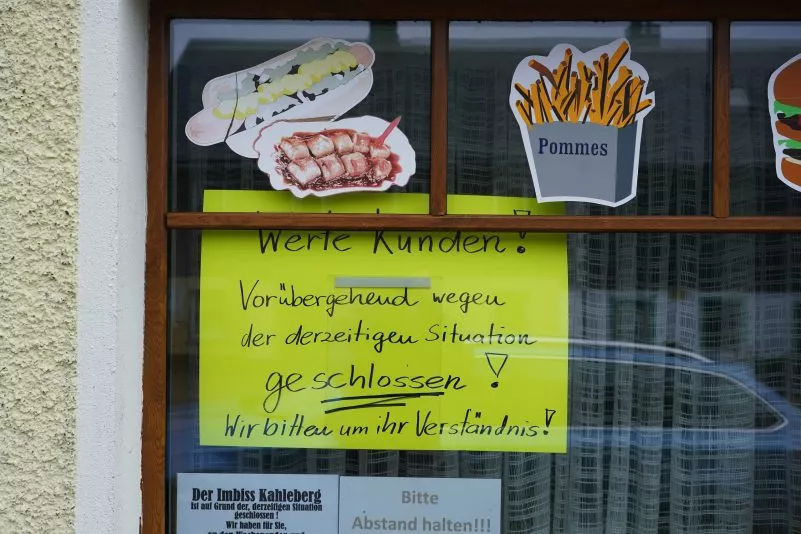 Pommes
Werte Kunden!
Vorübergehend wegen
der derzeitigen Situation
geschlossen!
Wir bitten um ihr Verständnis!
Der Imbiss Kahleberg
ist auf Grund der, derzeitigen Situation
geschlossen !
Wir haben für Sie,
an den Wochenenden und
Bitte
Abstand halten!!!